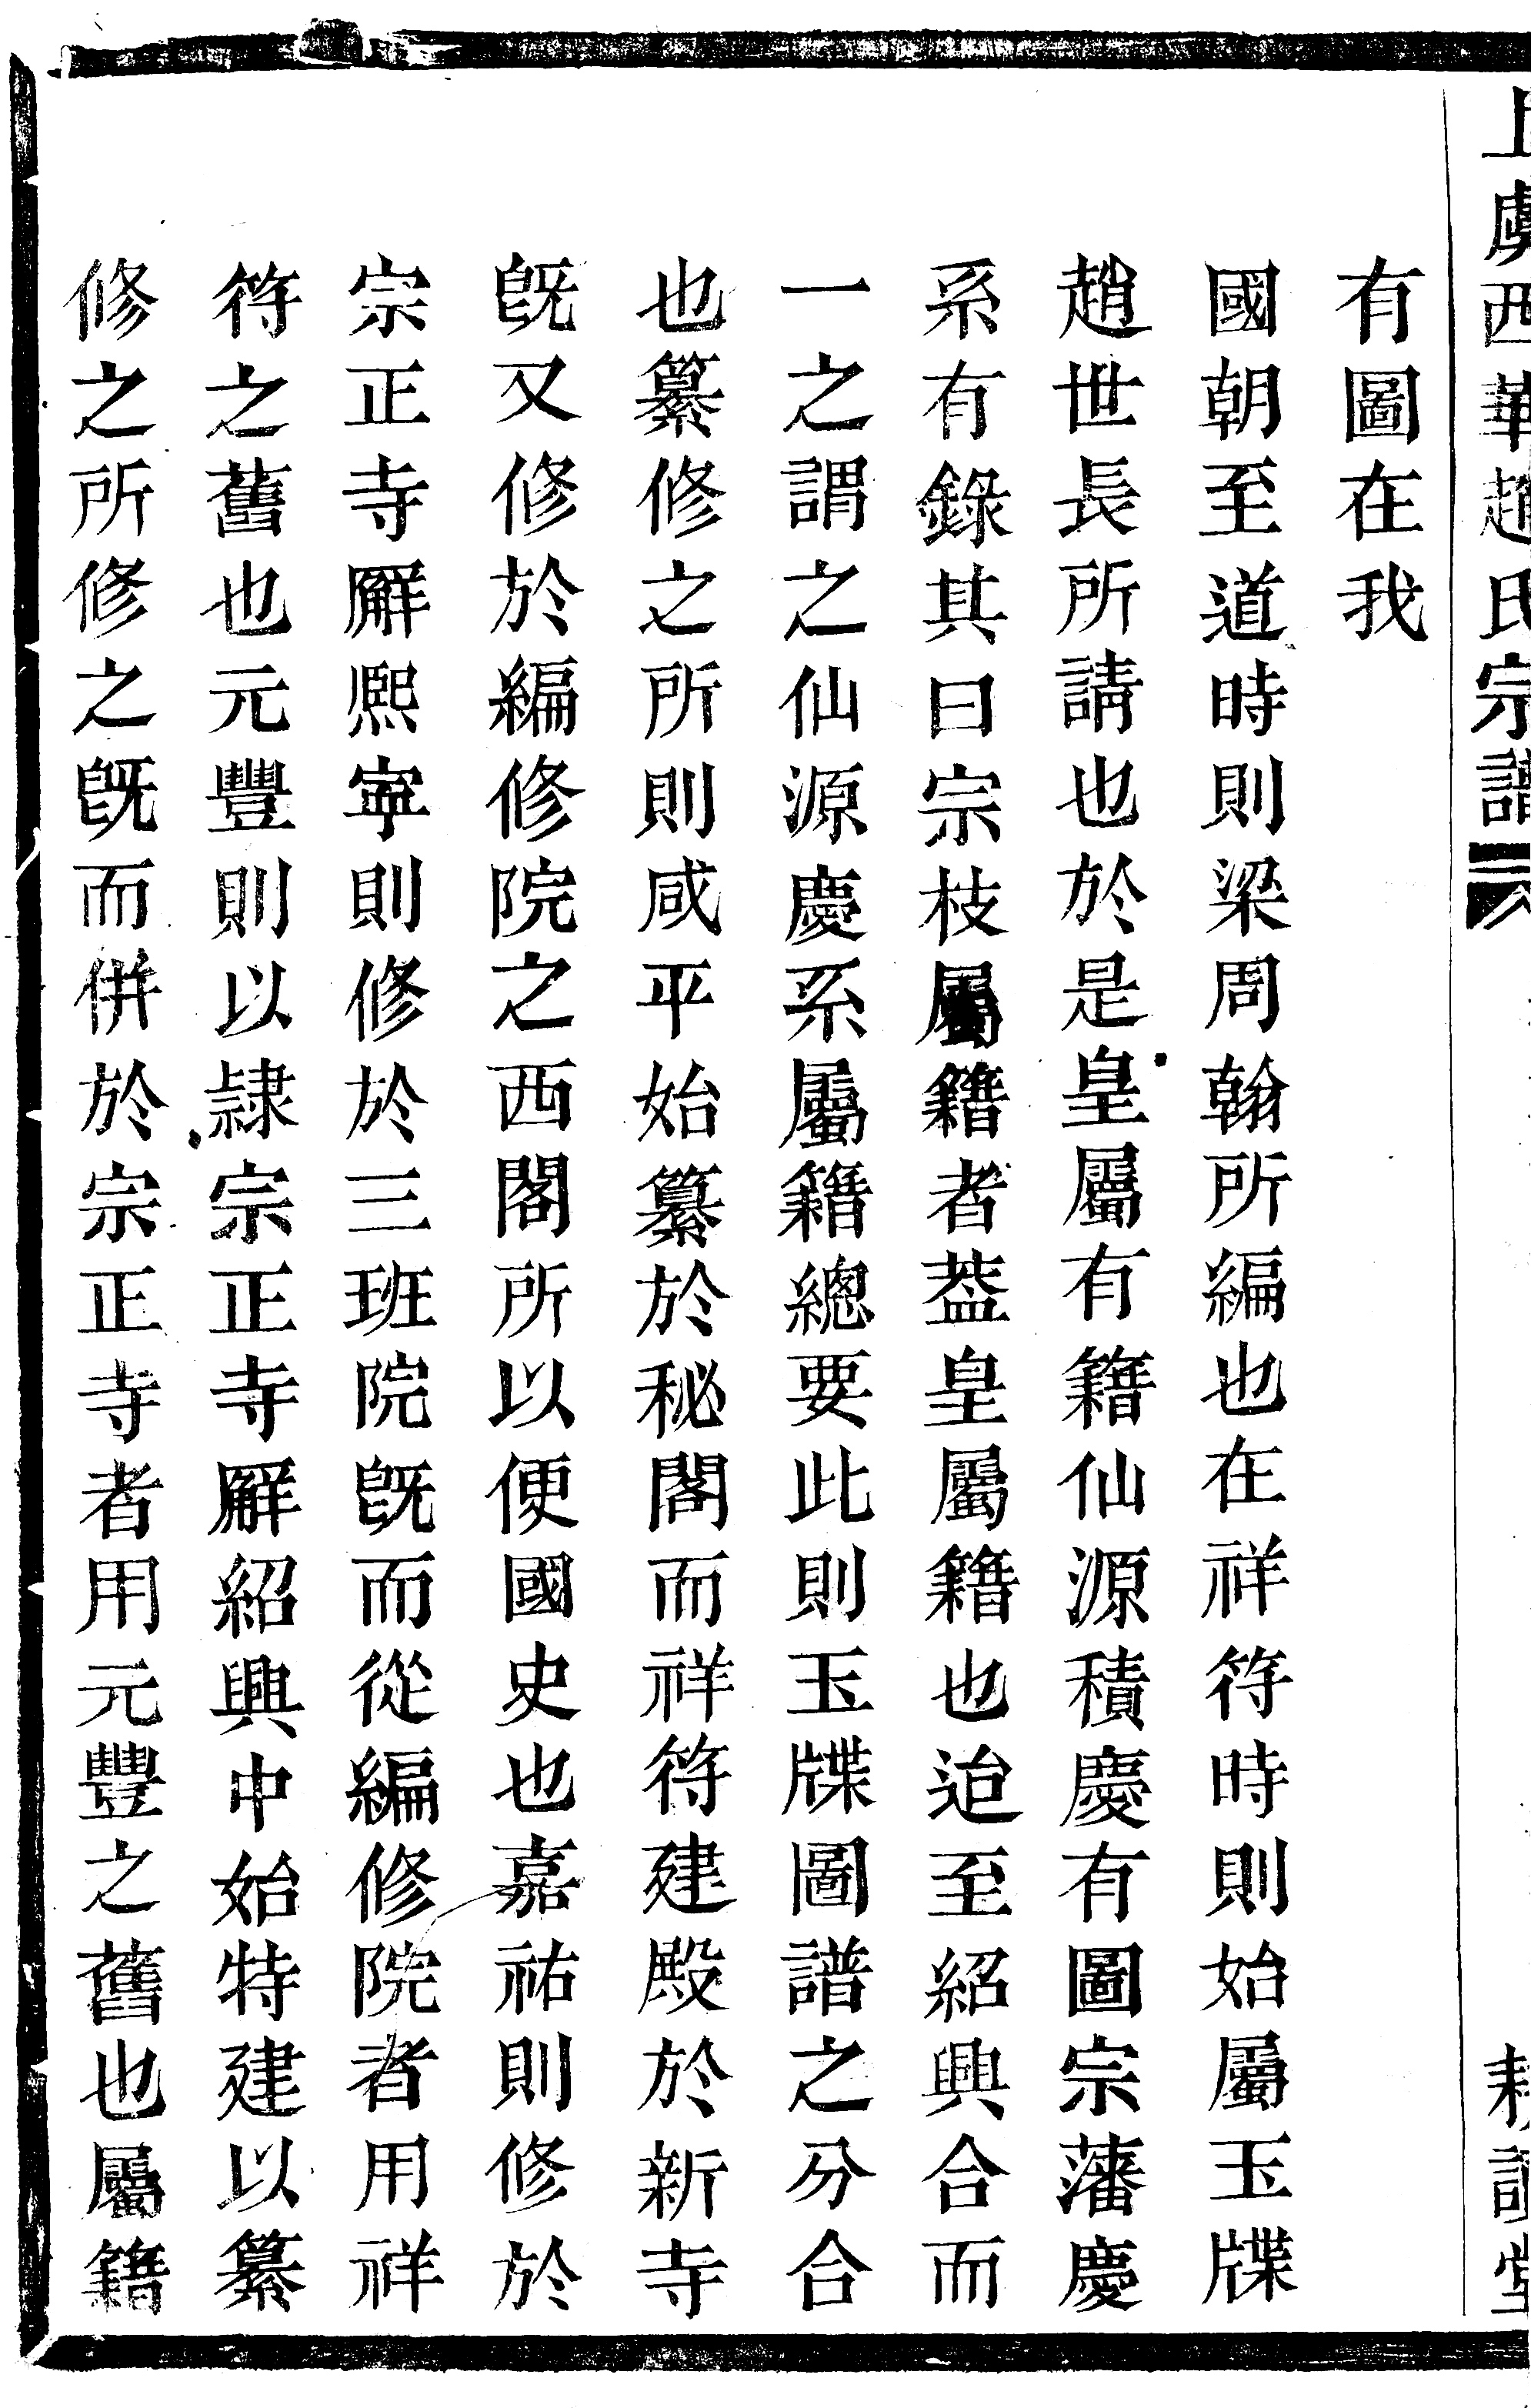 上虞西華趙氏宗譜
耕讀堂
有圖在我
國朝至道時則梁周翰所編也在祥符時則始屬玉牒
趙世長所請也於是皇屬有籍仙源積慶有圖宗藩慶
系有錄其曰宗枝屬籍者葢皇屬籍也迨至紹興合而
一之謂之仙源慶系屬籍總要此則玉牒圖譜之分合
也纂修之所則咸平始纂於秘閣而祥符建殿於新寺
旣又修於編修院之西閣所以便國史也嘉祐則修於
宗正寺廨熙寧則修於三班院旣而從編修院者用祥
符之舊也元豐則以隷宗正寺廨紹興中始特建以纂
修之所修之旣而併於宗正寺者用元豐之舊也屬籍